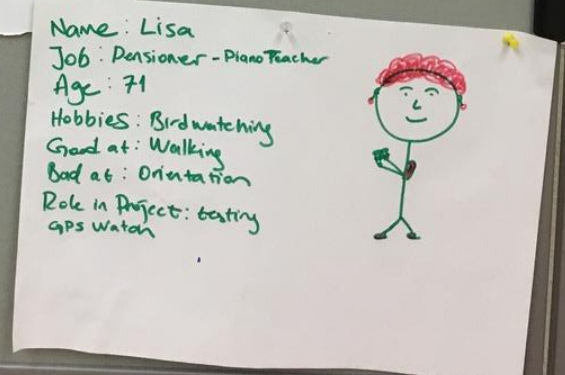 Name: Lisa
Job: Pensioner - Piano Teacher
Age: 71
Hobbies: Birdwatching
Good at: Walking
Bad at: Orientation
Role in Project: testing
GPS Watch